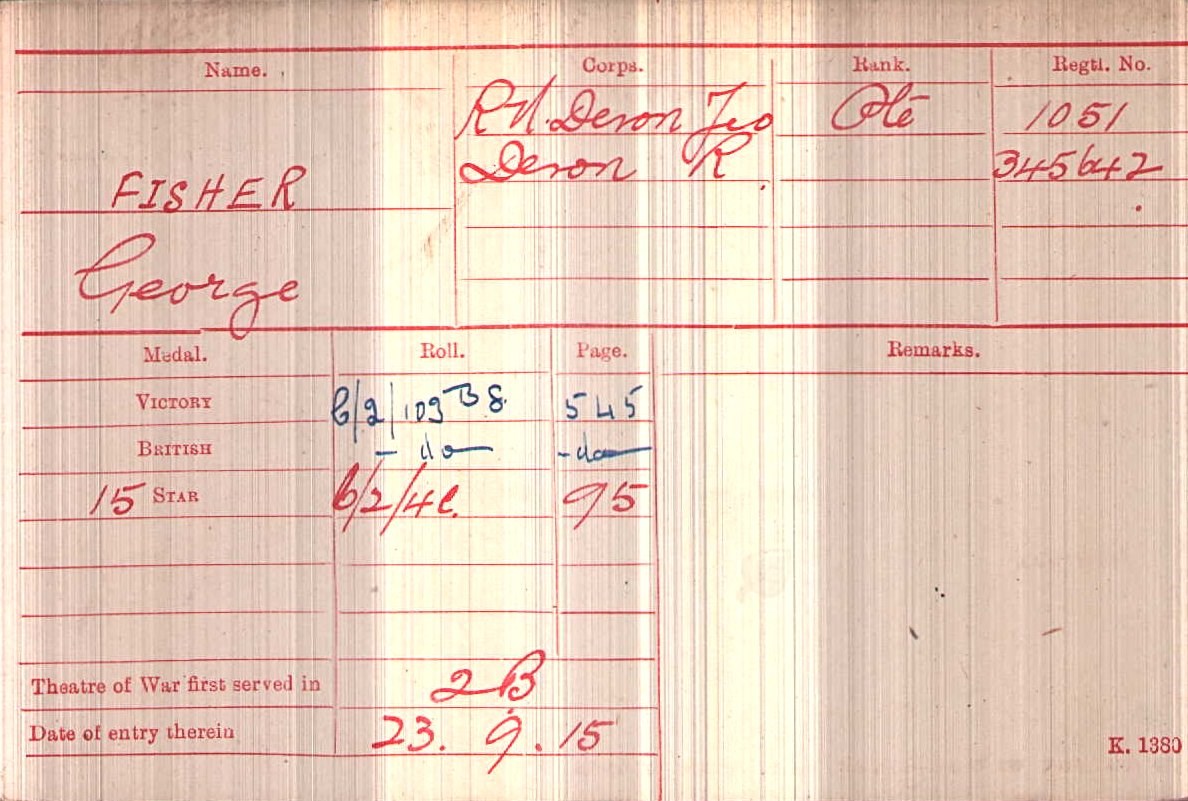 Name. Corps. Rank. Regtl. No.
R.N. Devon Yeo Pte 1051
Devon R 345642
FISHER
George
Medal. Roll. Page. Remarks.
VICTORY 6/2/103 B8. 545
BRITISH - do - - do -
15 STAR 6/2/4C. 95
Theatre of War first served in 2B
Date of entry therein 23. 9. 15
K. 1380